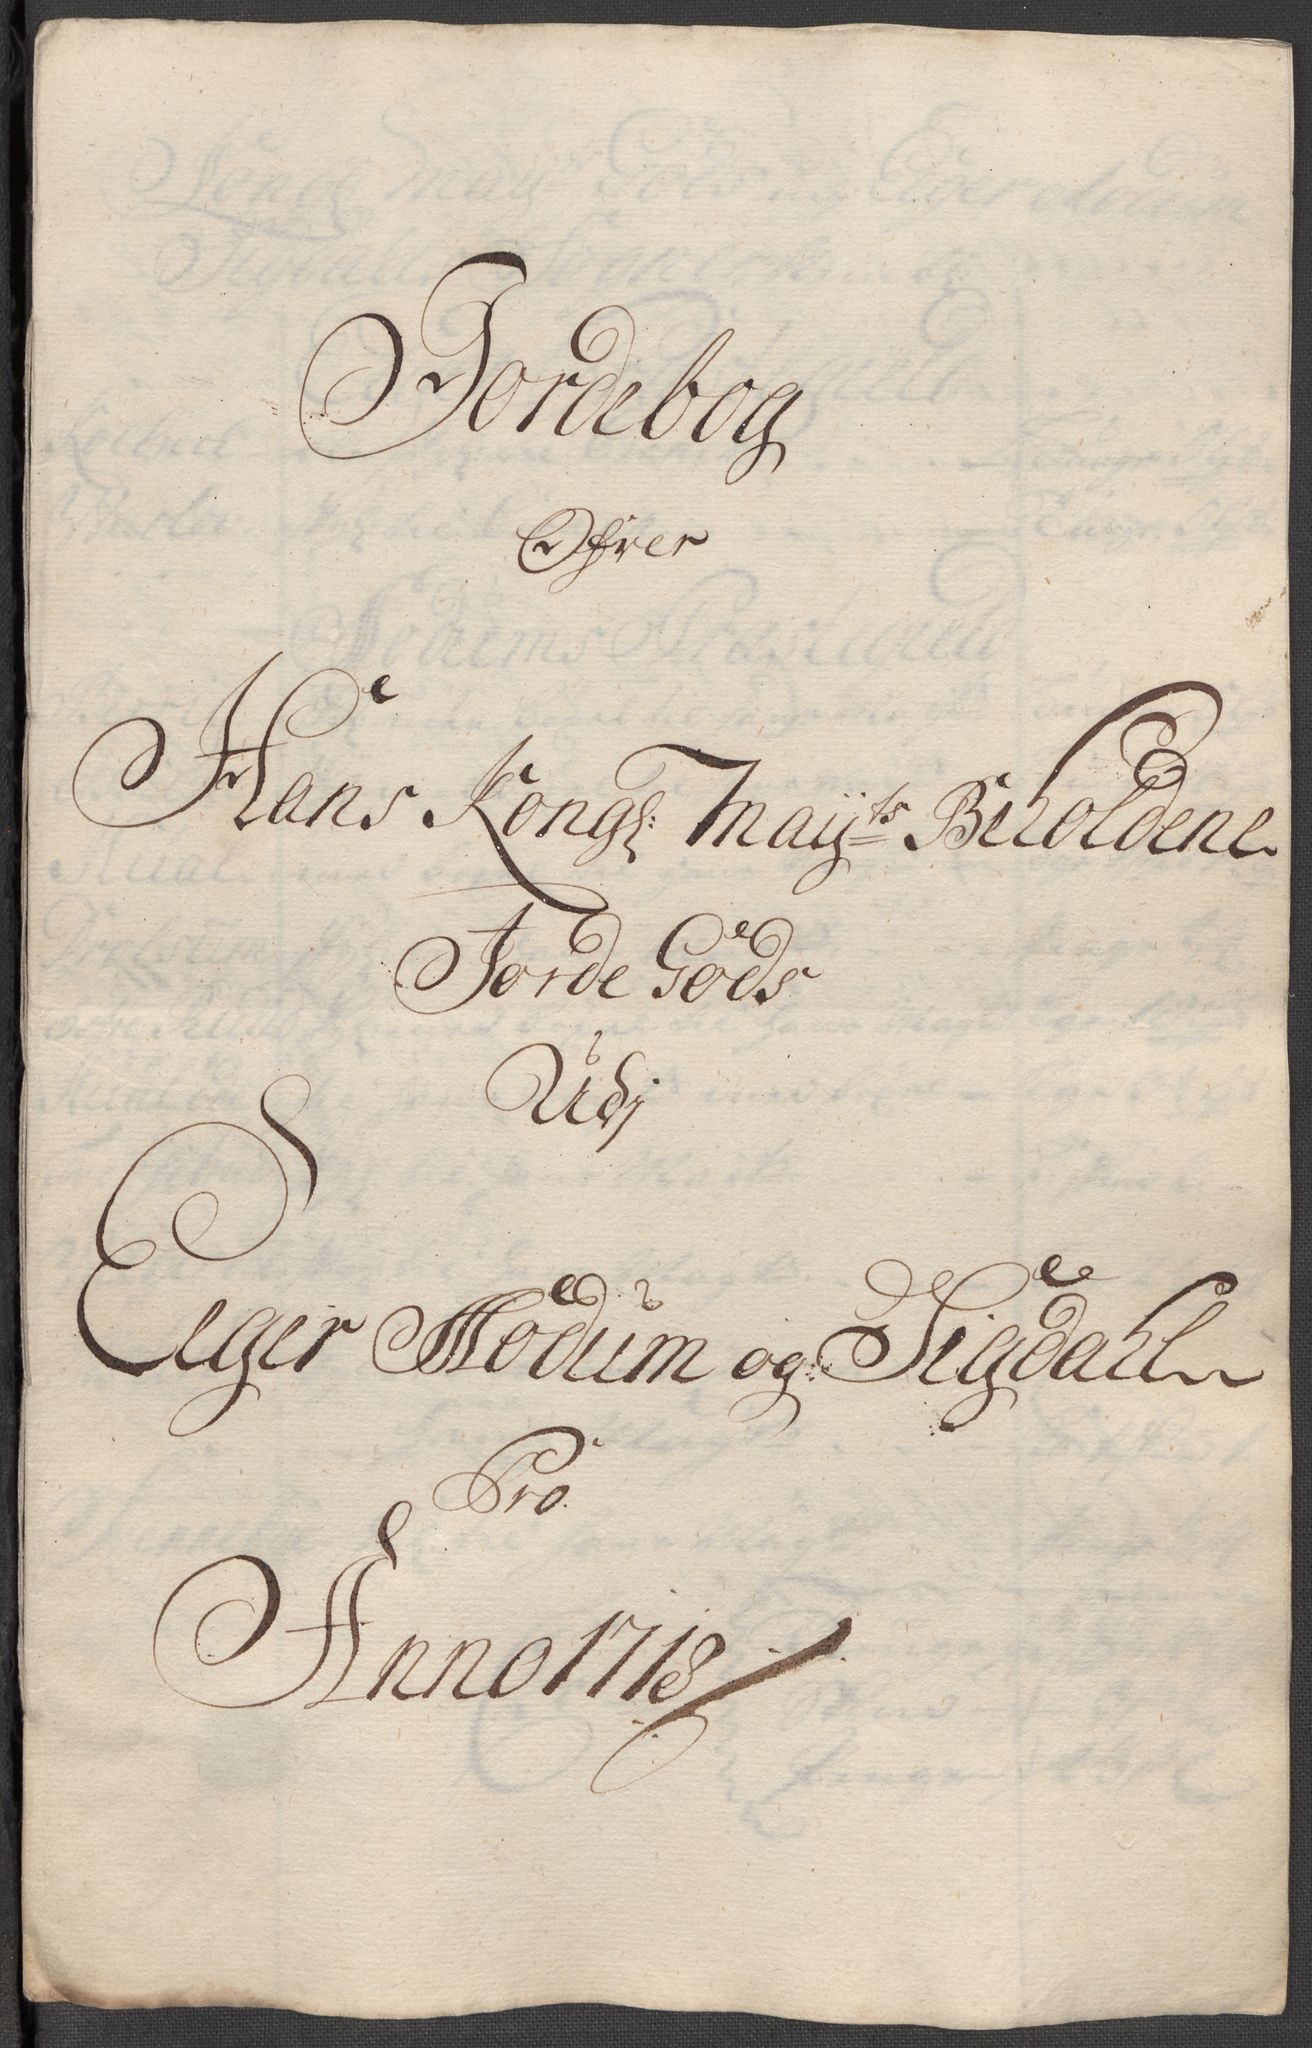 Jordebog
Ofver
Hans Kongl: Mayts Beholdene
Jorde Gods
Udj
Eger Modum og Sigdahl
Pro
Anno 1718